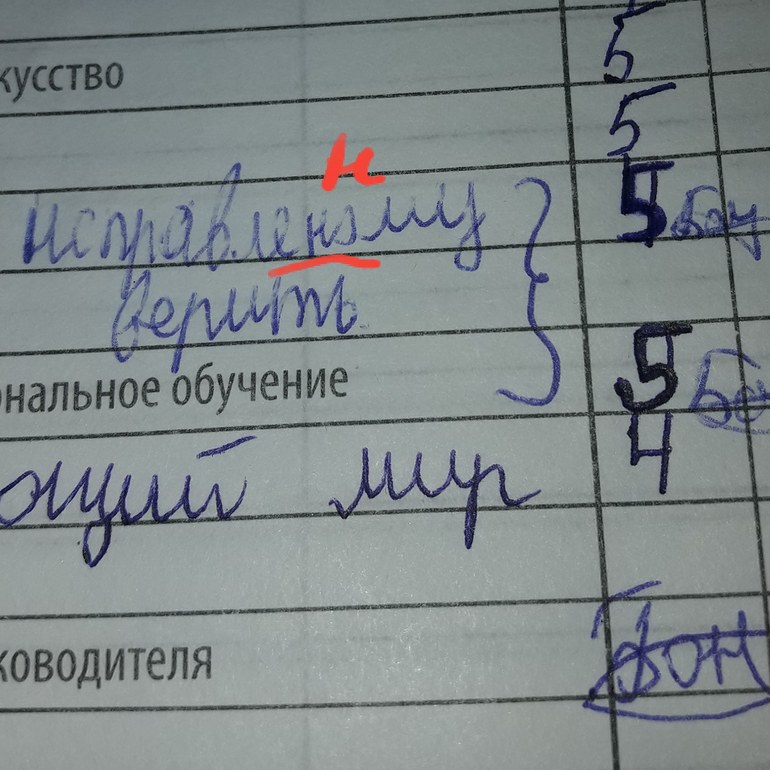 кусство 5
5
н
исправленому 5 Бон
верить
ональное обучение 5
ющий мир 4
ководителя Бон